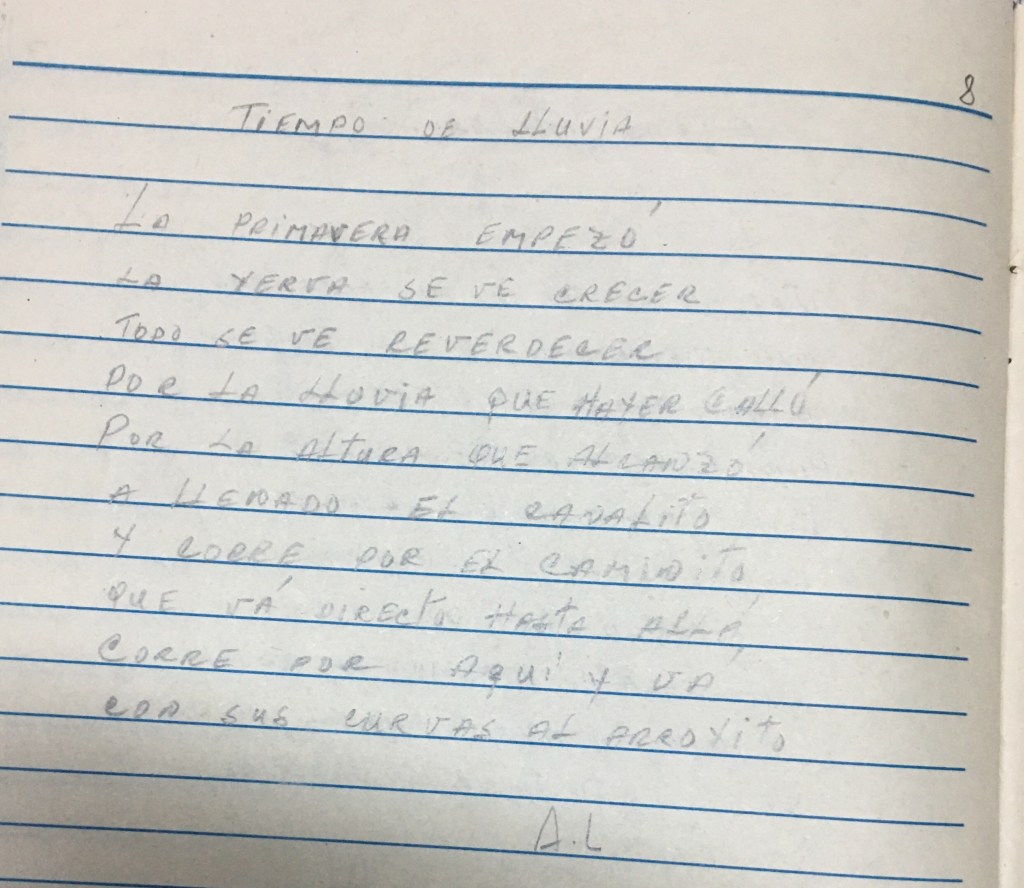 8
TIEMPO DE LLUVIA
LA PRIMAVERA EMPEZÓ.
LA YERVA SE VE CRECER
TODO SE VE REVERDECER
POR LA LLUVIA QUE HAYER CALLÓ
POR LA ALTURA QUE ALCANZÓ
A LLENADO EL CANALITO
Y CORRE POR EL CAMINITO
QUE VÁ DIRECTO HASTA ALLÁ
CORRE POR AQUÍ Y VÁ
CON SUS CURVAS AL ARROYITO
A.L